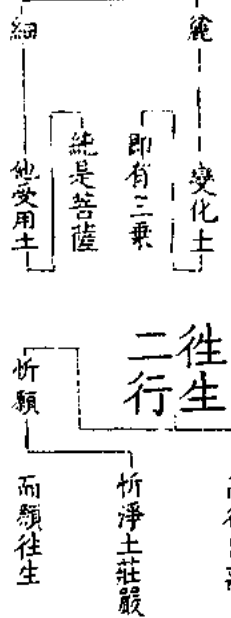 麁
變化土
即有三乗
純是菩薩
細
他受用土
往生
二行
忻淨土莊嚴
忻願
而願往生